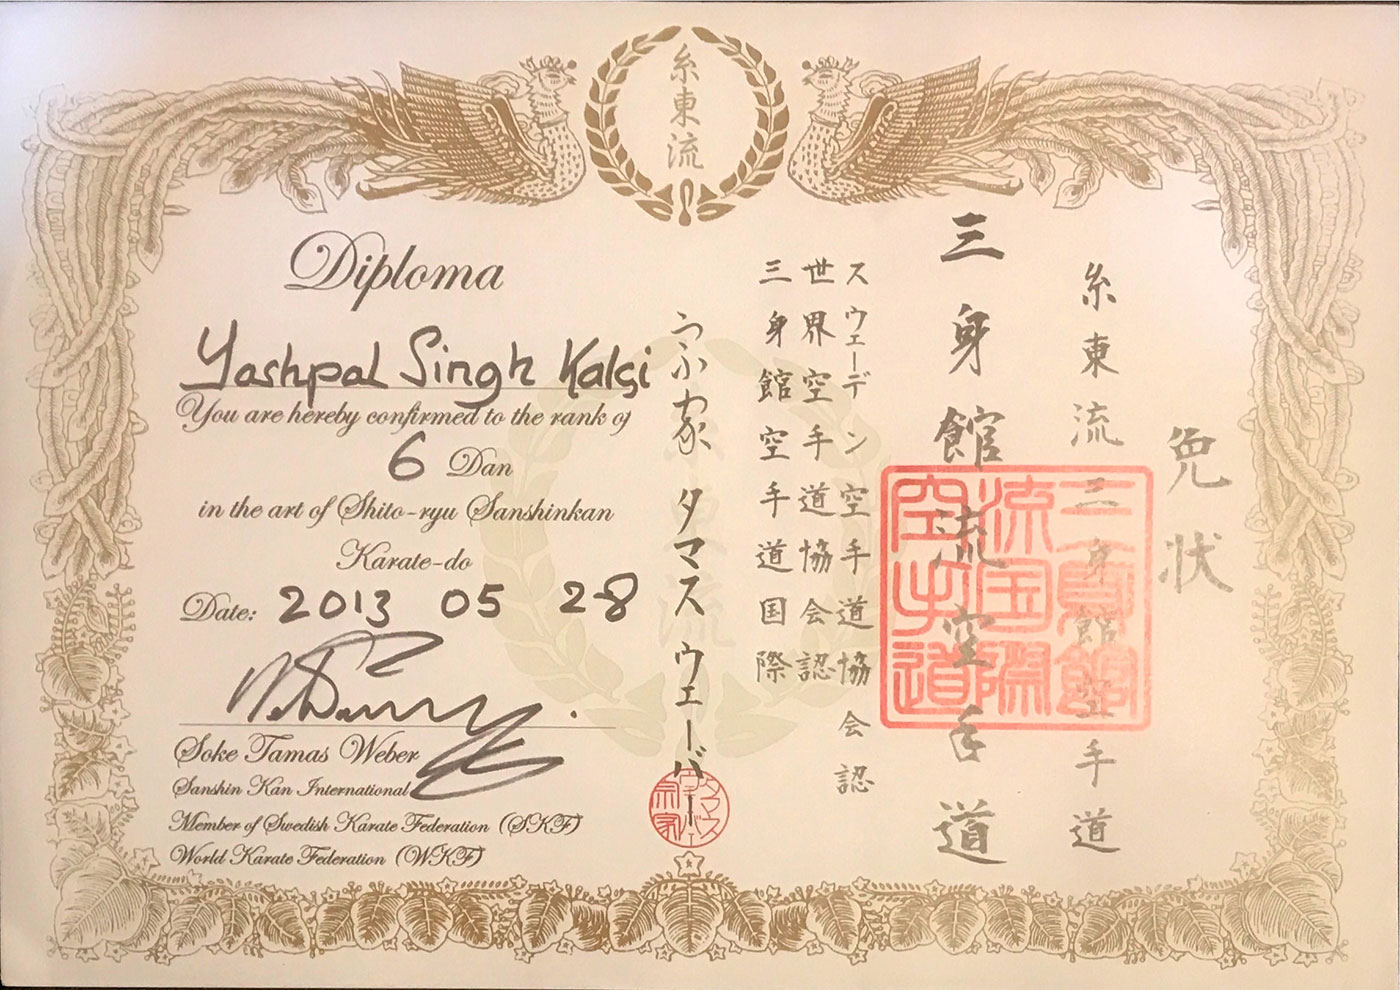 糸東流
Diploma
Yashpal Singh Kalsi
You are hereby confirmed to the rank of
6 Dan
in the art of Shito-ryu Sanshinkan
Karate-do
Date: 2013 05 28
Soke Tamas Weber
Sanshin Kan International
Member of Swedish Karate Federation (SKF)
World Karate Federation (WKF)
免状
糸東流三身館空手道
三身館流空手道
スウェーデン空手道協会認
世界空手道協会認
三身館空手道国際
タマスウェーバー
三身館
流国際
空手道